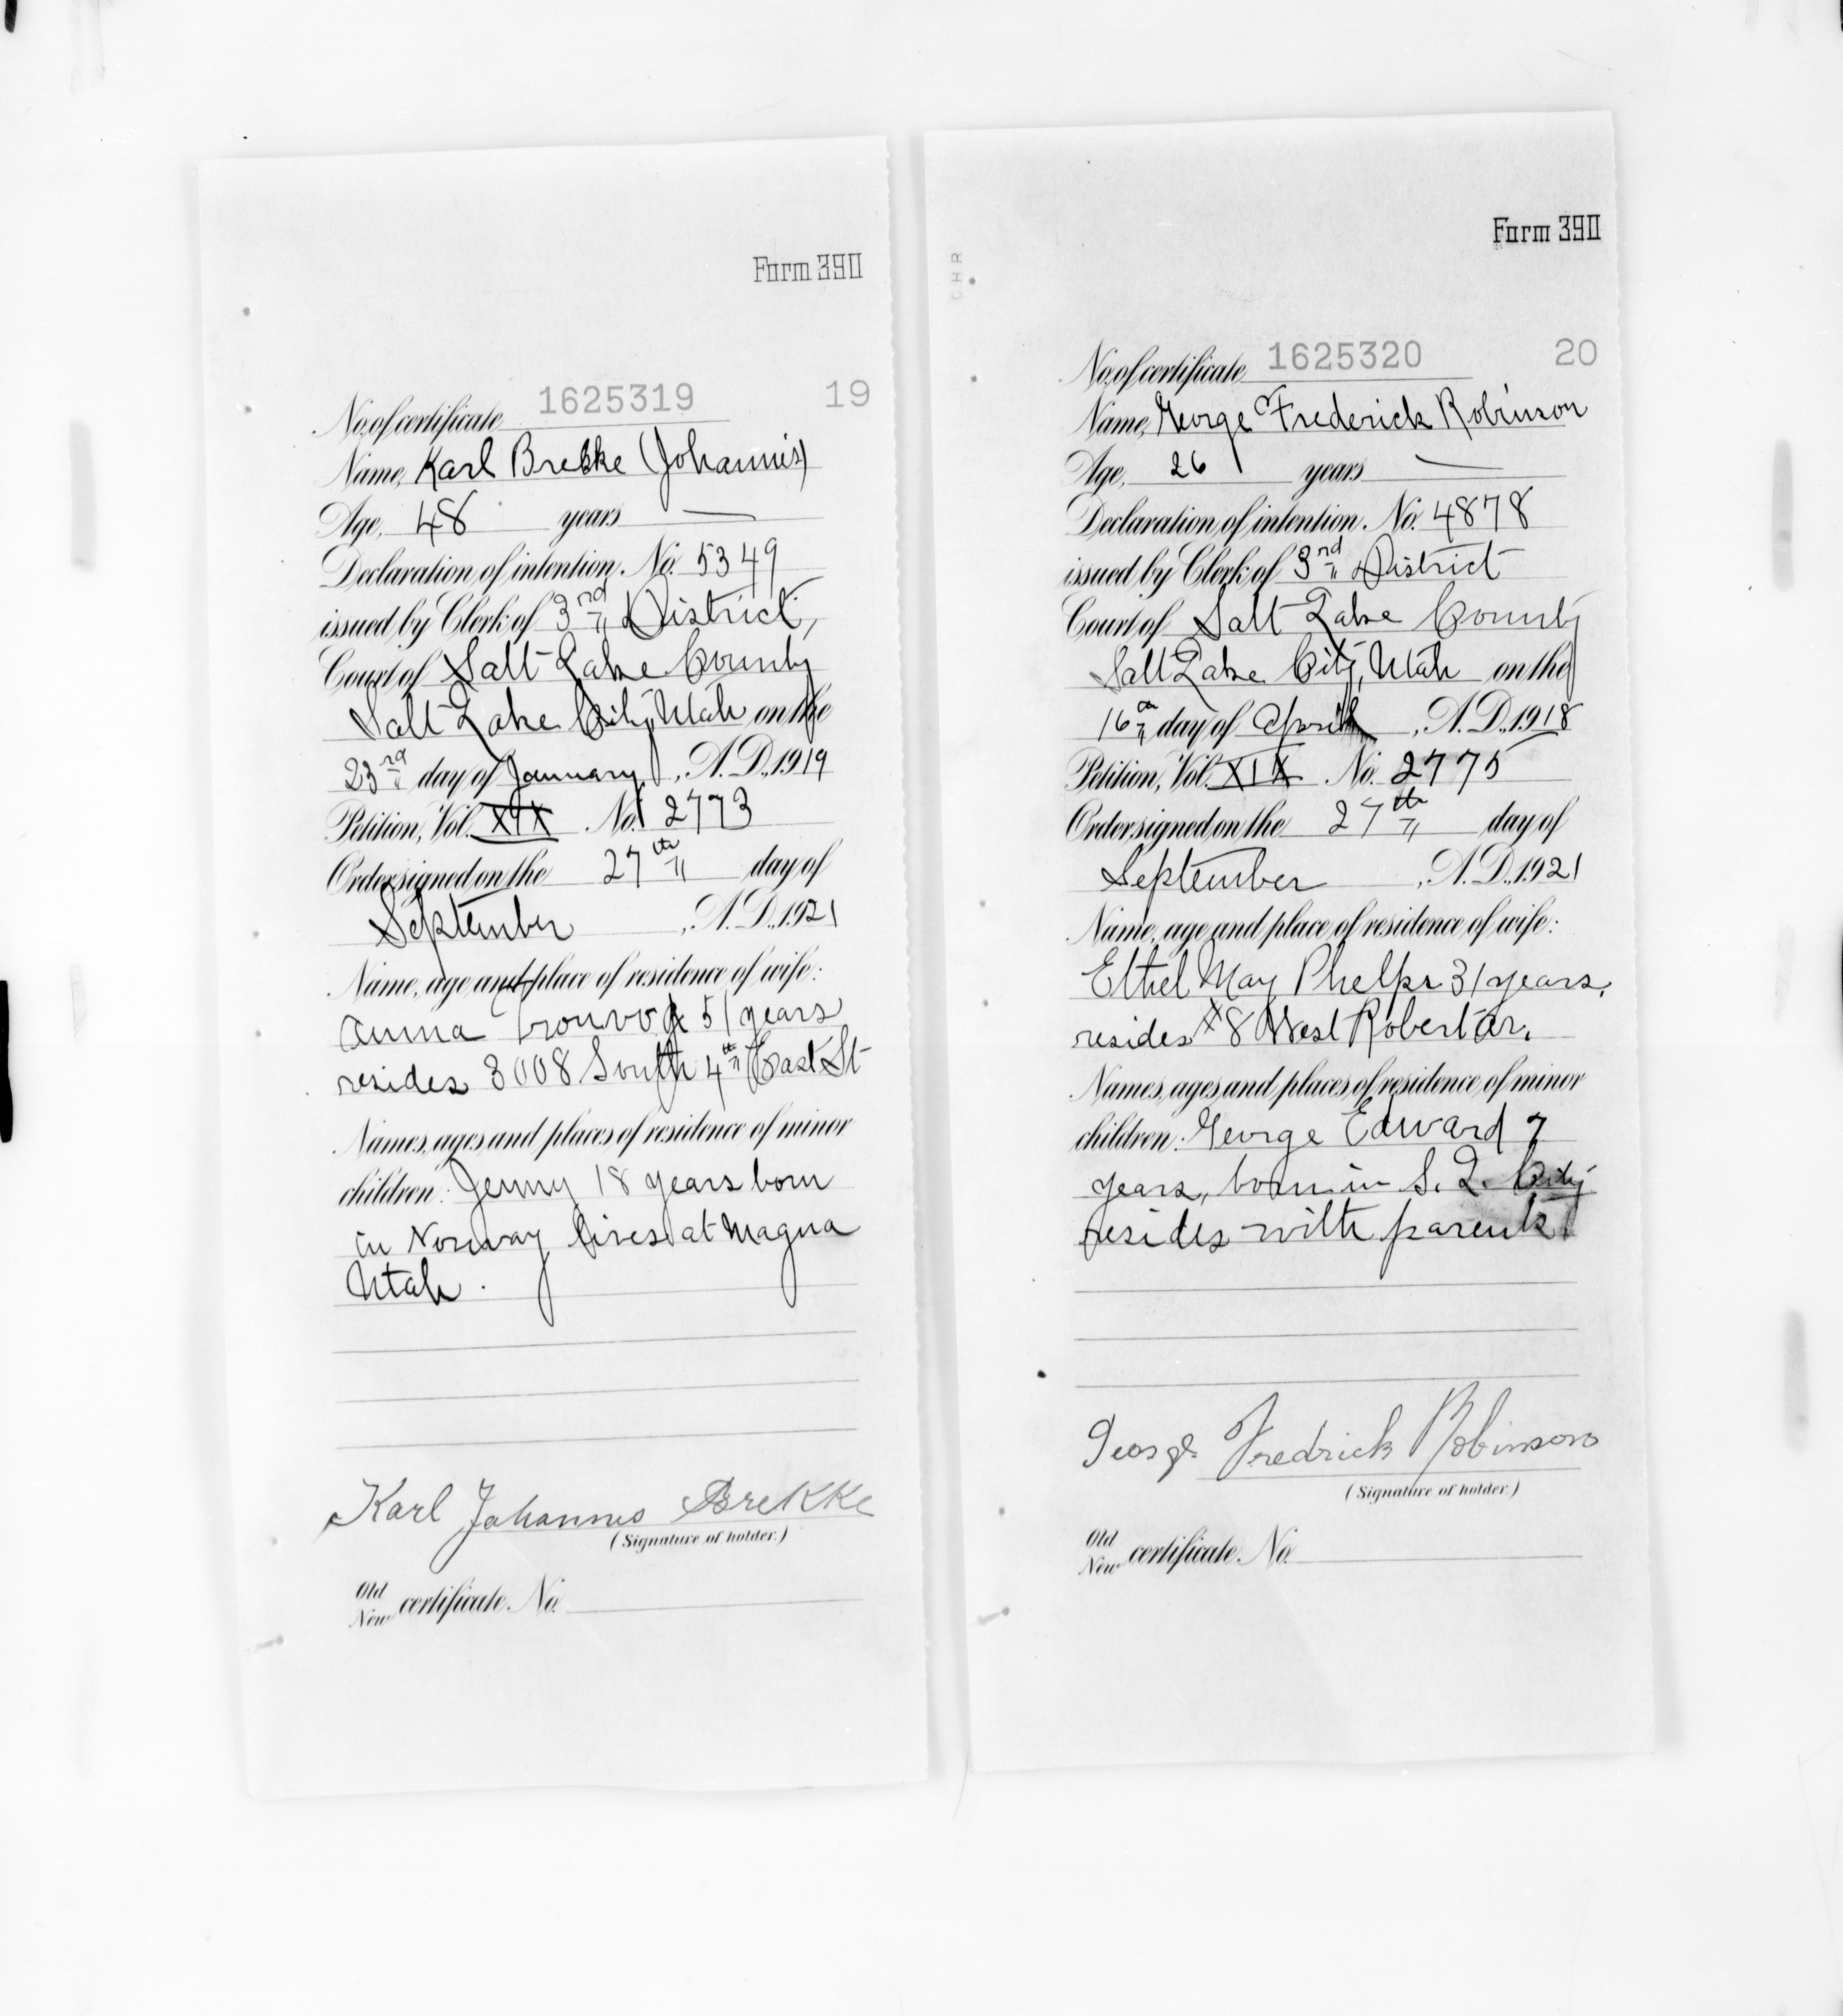 Form 390
No. of certificate 1625319 19
Name, Karl Brekke (Johannis)
Age, 48 years —
Declaration of intention, No. 5349
issued by Clerk of 3rd District,
Court of Salt Lake County
Salt Lake City, Utah on the
23rd day of January, A.D., 1919
Petition, Vol. XIX No. 2773
Order signed on the 27th day of
September, A.D., 1921
Name, age and place of residence of wife:
Anna 51 years
resides 3008 South 4th East St
Names, ages and places of residence of minor
children: Jenny 18 years born
in Norway lives at Magna
Utah.
Karl Johannes Brekke
(Signature of holder.)
Old
New certificate No.
Form 390
CHR
No. of certificate 1625320 20
Name, George Frederick Robinson
Age, 26 years —
Declaration of intention, No. 4878
issued by Clerk of 3rd District
Court of Salt Lake County
Salt Lake City, Utah on the
16th day of April, A.D., 1918
Petition, Vol. XIX No. 2775
Order signed on the 27th day of
September, A.D., 1921
Name, age and place of residence of wife:
Ethel May Phelps 31 years,
resides #8 West Robert Ar.
Names, ages and places of residence of minor
children: George Edward 7
years, born in S. L. City
resides with parents
George Fredrick Robinson
(Signature of holder.)
Old
New certificate No.